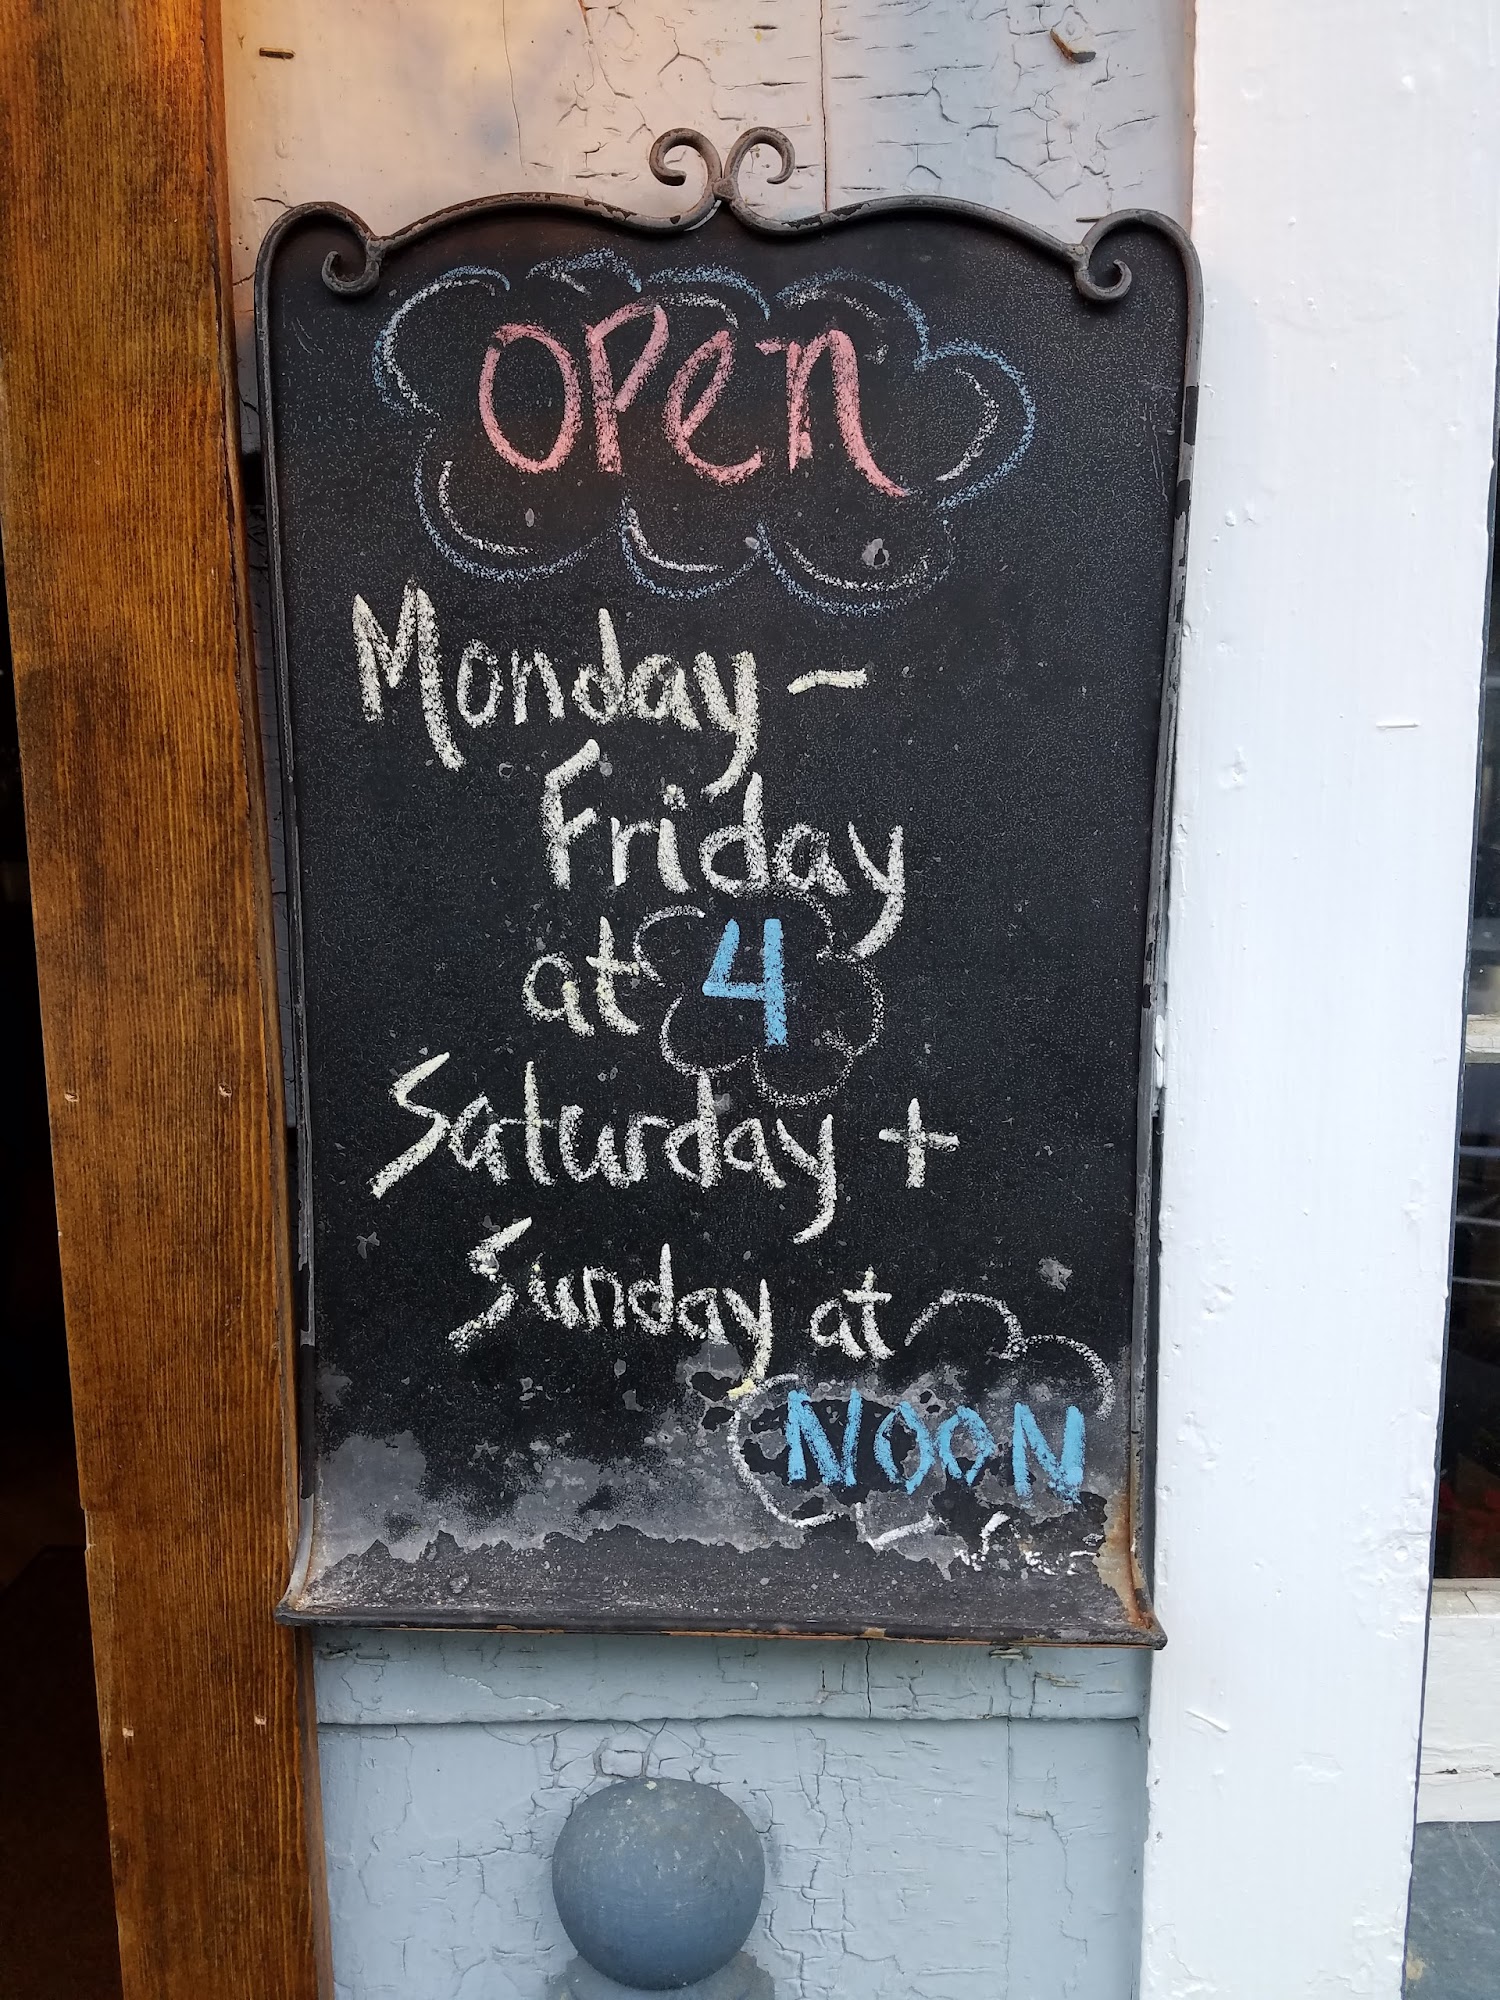 open
Monday -
Friday
at 4
Saturday +
Sunday at
NOON